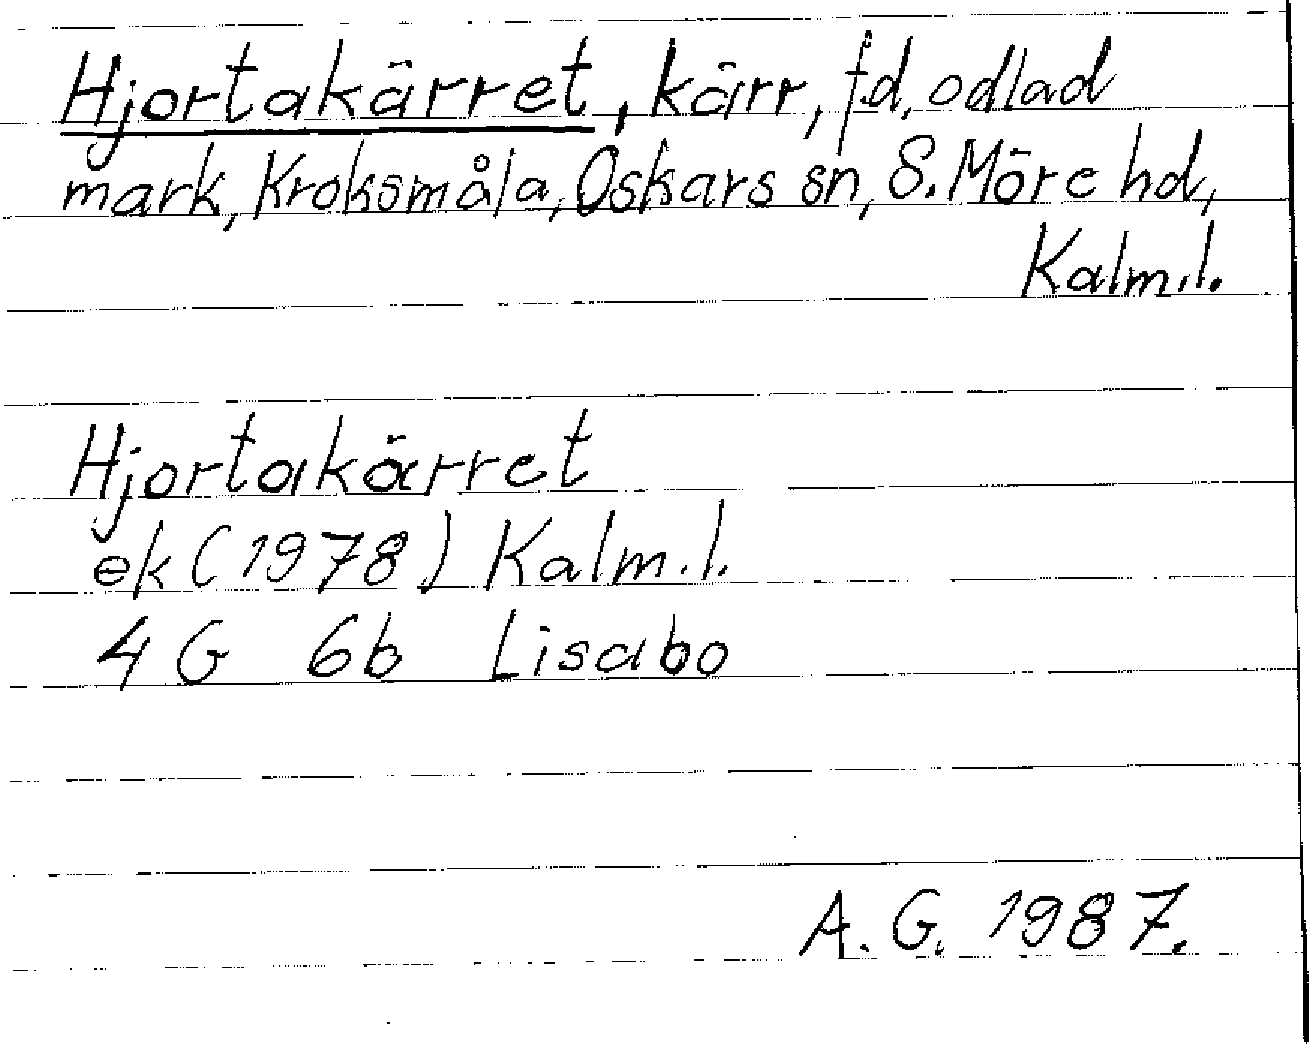 Hjortakärret, kärr, f.d. odlad
mark, Kroksmåla, Oskars sn, S. Möre hd,
Kalm.l.
Hjortakärret
ek (1978) Kalm.l.
4 G 6b Lisabo
A.G. 1987.